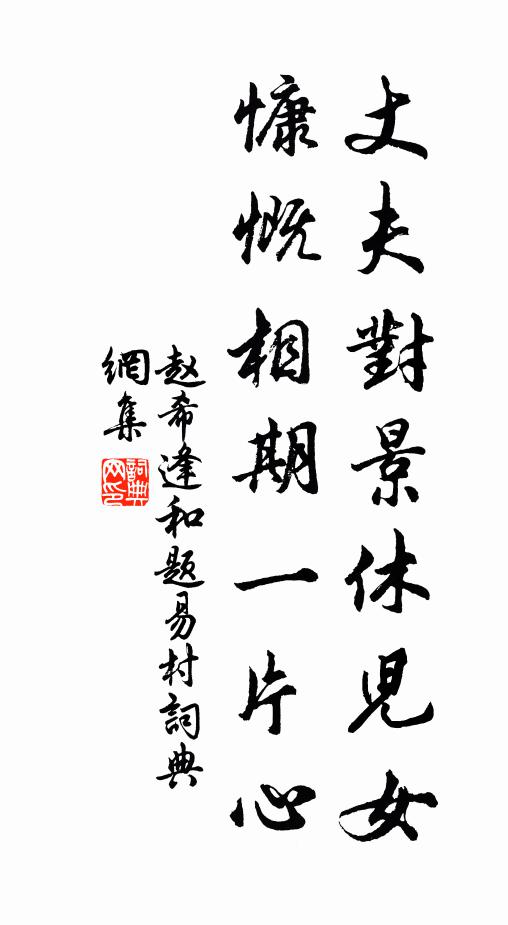 丈夫對景休児女
慷慨相期一片心
赵希逢和題易村詞典
網集
詞典
网印